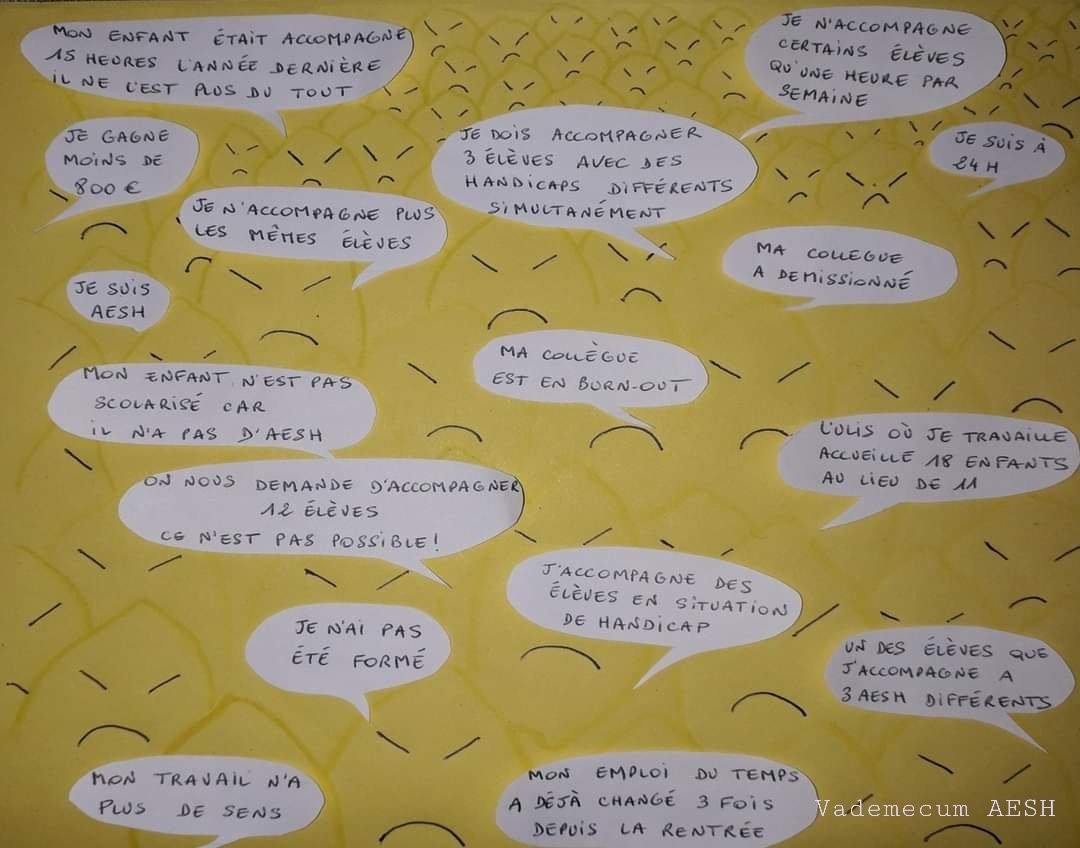 MON ENFANT ÉTAIT ACCOMPAGNÉ
15 HEURES L'ANNÉE DERNIÈRE
IL NE L'EST PLUS DU TOUT
JE N'ACCOMPAGNE
CERTAINS ÉLÈVES
QU'UNE HEURE PAR
SEMAINE
JE GAGNE
MOINS DE
800 €
JE DOIS ACCOMPAGNER
3 ÉLÈVES AVEC DES
HANDICAPS DIFFÉRENTS
SIMULTANÉMENT
JE SUIS À
24 H
JE N'ACCOMPAGNE PLUS
LES MÊMES ÉLÈVES
MA COLLEGUE
A DEMISSIONNÉ
JE SUIS
AESH
MA COLLÈGUE
EST EN BURN-OUT
MON ENFANT N'EST PAS
SCOLARISÉ CAR
IL N'A PAS D'AESH
L'ULIS OÙ JE TRAVAILLE
ACCUEILLE 18 ENFANTS
AU LIEU DE 11
ON NOUS DEMANDE D'ACCOMPAGNER
12 ÉLÈVES
CE N'EST PAS POSSIBLE!
J'ACCOMPAGNE DES
ÉLÈVES EN SITUATION
DE HANDICAP
JE N'AI PAS
ÉTÉ FORMÉ
UN DES ÉLÈVES QUE
J'ACCOMPAGNE A
3 AESH DIFFÉRENTS
MON TRAVAIL N'A
PLUS DE SENS
MON EMPLOI DU TEMPS
A DÉJÀ CHANGÉ 3 FOIS
DEPUIS LA RENTRÉE
Vademecum AESH